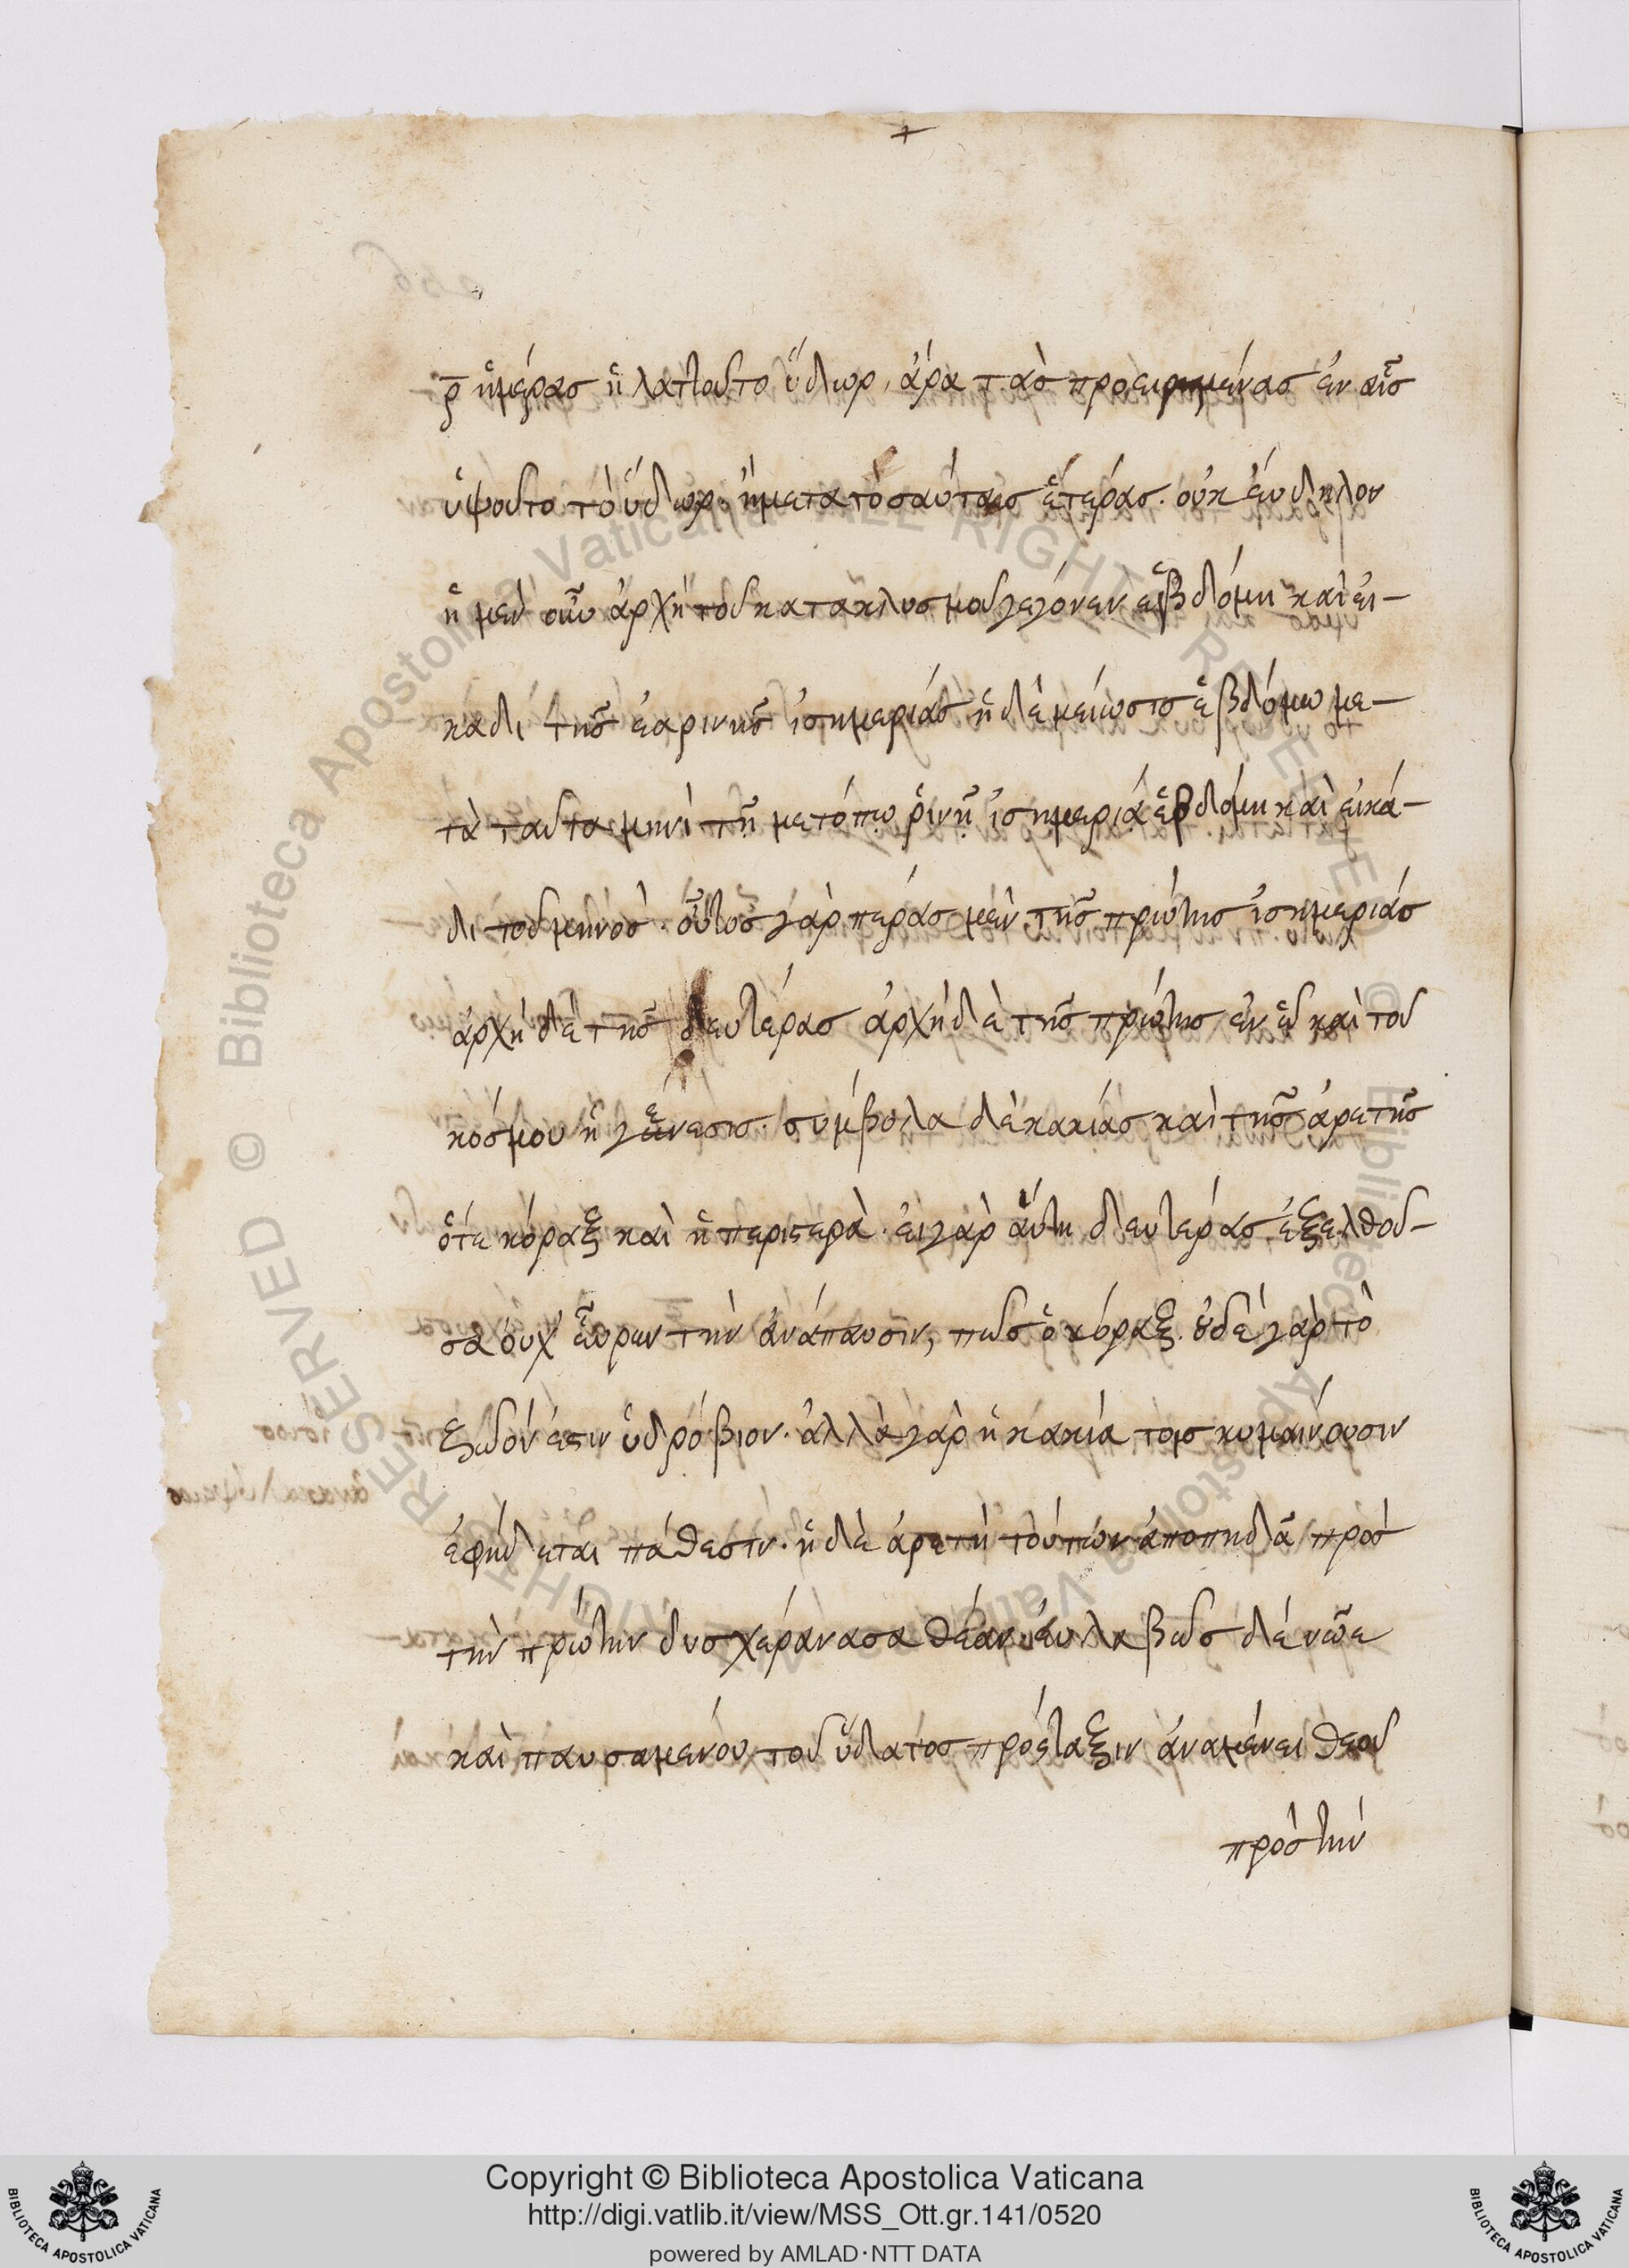 ρ̅ ἡμέρας ἠλατ͂τοῦτο ὕδωρ, ἄρα τὰς προειρημένας ἐν αἷς
ὑψοῦτο τὸ ὕδωρ· ἢ μετὰ τὸσαύτας ἑτέρας· οὐκ ἔνδηλον
ἡ μὲν οὖν ἀρχὴ τοῦ κατακλυσμοῦ γέγονεν ἑβδόμη καὶ εἰ-
κάδι τῆς ἐαρινῆς ἰσημερίας ἡ δὲ μείωσις ἑβδόμω με-
τὰ ταῦτα μηνὶ τῆ μετοπωρινῆ ἰσημερία ἑβδόμη καὶ εἰκά-
δι τοῦ μηνός· οὗτος γὰρ πέρας μὲν τῆς πρώτης ἰσημερίας
ἀρχὴ δὲ τῆς δευτέρας ἀρχὴ δὲ τῆς πρώτης ἐν ᾗ καὶ τοῦ
κόσμου ἡ γένεσις· σύμβολα δὲ κακίας καὶ τῆς ἀρετῆς
ὅτε κόραξ καὶ ἡ περιστερά· εἰ γὰρ αὕτη δευτέρας ἐξελθοῦ-
σα οὐχ εὗρεν τὴν ἀνάπαυσιν, πῶς ὁ κόραξ· οὐδὲ γὰρ τὸ
ζῶόν ἐστιν ὑδρόβιον· ἀλλὰ γὰρ ἡ κακία τοῖς κυμαίνουσιν
ἐφήδεται πάθεσιν· ἡ δὲ ἀρετὴ τούτων ἀποπηδᾶ πρὸς
τὴν πρώτην δυσχεράνασα θέαν· εὐλαβῶς δὲ νῶε
καὶ παυσαμένου τοῦ ὕδατος πρόσταξιν ἀναμένει θεοῦ
πρὸς τὴν
Copyright © Biblioteca Apostolica Vaticana
http://digi.vatlib.it/view/MSS_Ott.gr.141/0520
powered by AMLAD·NTT DATA
BIBLIOTECA APOSTOLICA VATICANA
BIBLIOTECA APOSTOLICA VATICANA